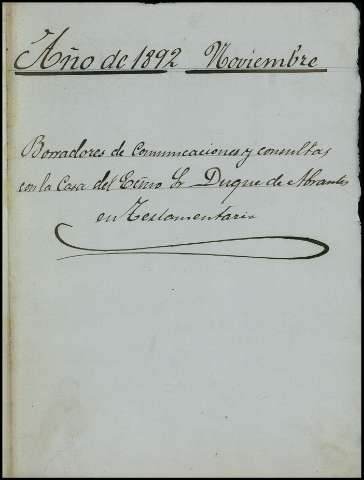 Año de 1892 Noviembre
Borradores de Comunicaciones y consultas
con la Casa del Ecmo Sr Duque de Abrantes
en Testamentaria